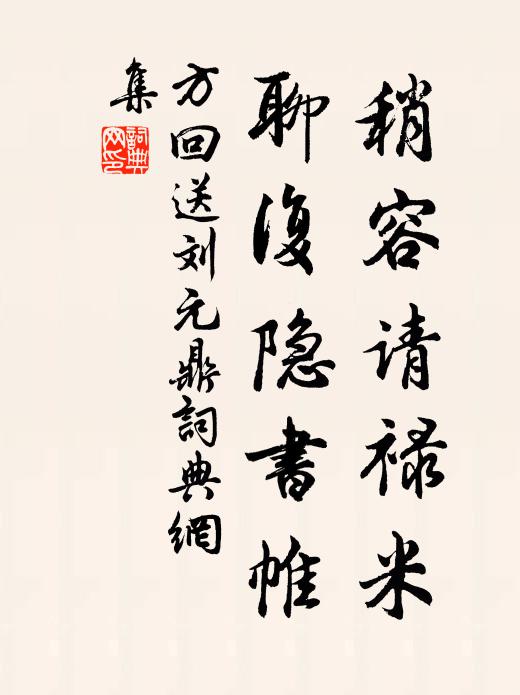 稍容请禄米
聊復隐書帷
方回送刘元鼎詞典網
集
詞典网印